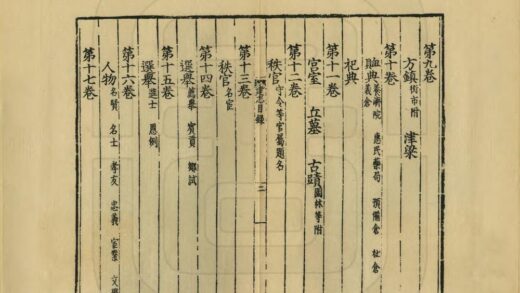 第九卷
方鎮 街市附 津梁
第十卷
卹典 養濟院 惠民藥局 預備倉 社倉 義倉
祀典
第十一卷
宮室 丘墓 古蹟 園林等附
第十二卷
秩官 守令等官屬題名
志目錄 二
第十三卷
秩官 名宦
第十四卷
選舉 薦舉 賓貢 鄉試
第十五卷
選舉 進士 恩例
第十六卷
人物 名賢 名士 孝友 忠義 宦業 文
第十七卷